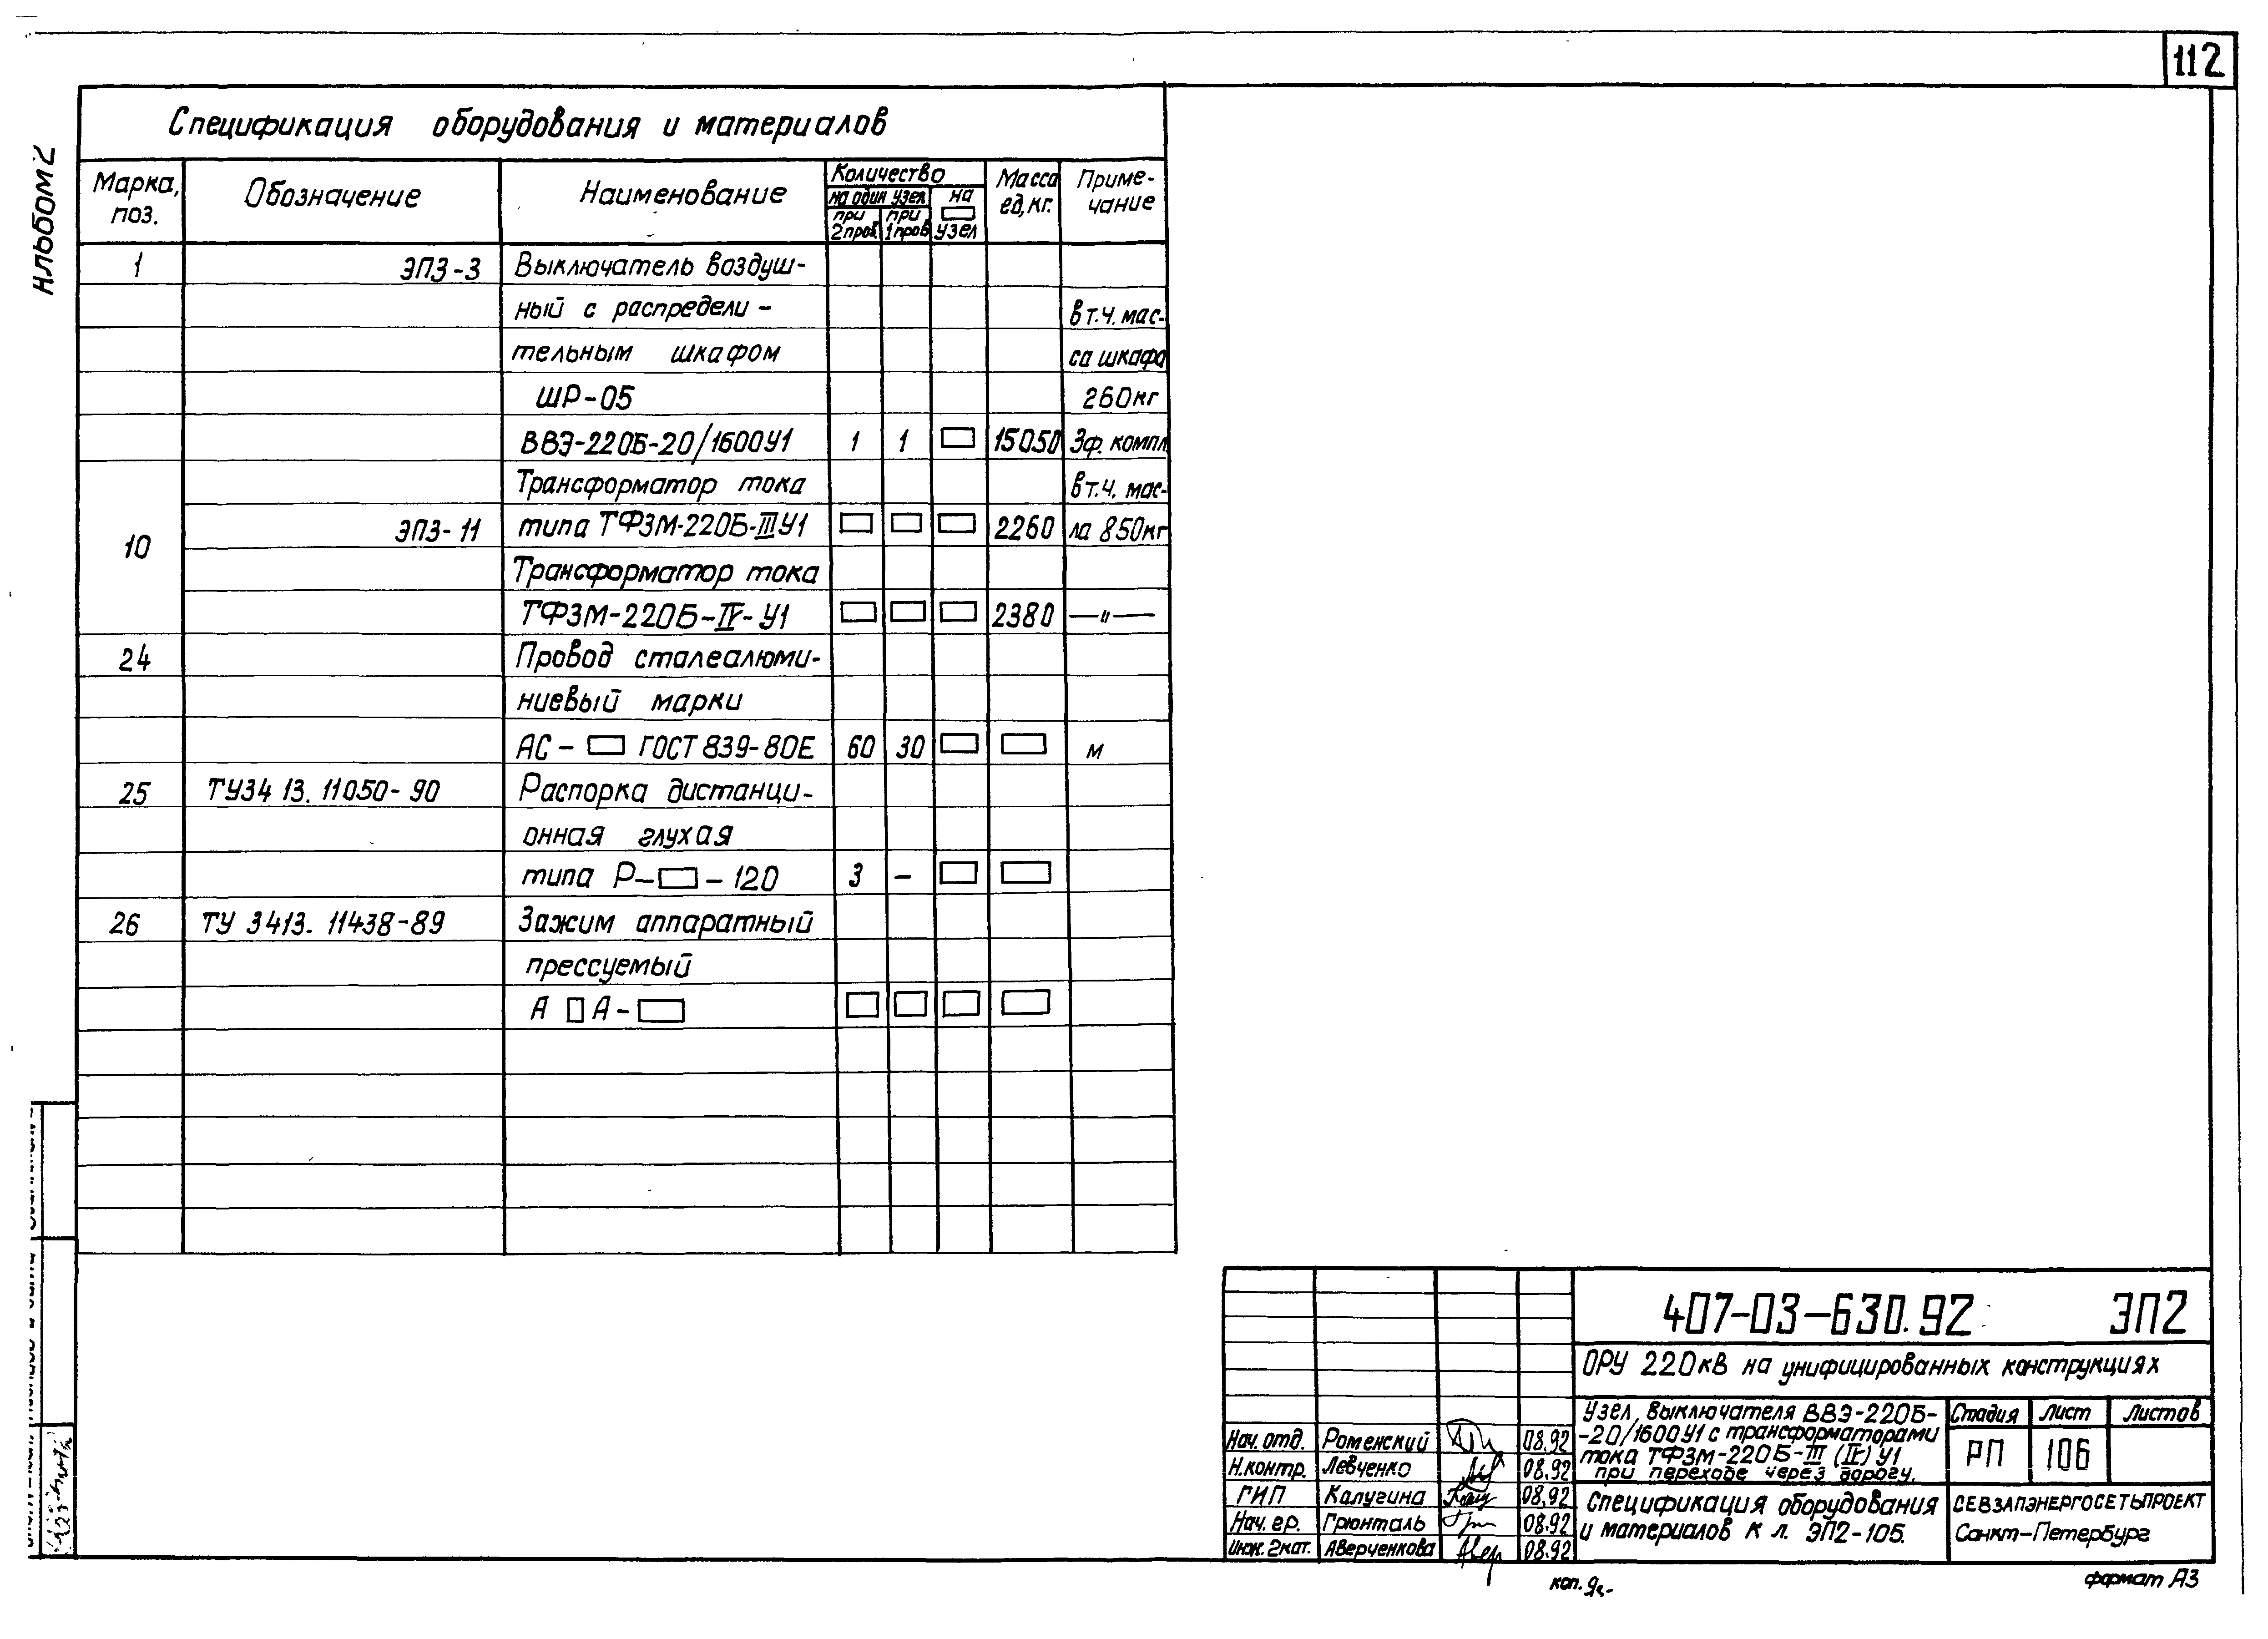 112
Альбом 2
Спецификация оборудования и материалов
Марка, поз. Обозначение Наименование Количество Масса ед, кг. Приме-чание
на один узел на □ узел
при 2 пров. при 1 пров
1 ЭП3-3 Выключатель воздуш-
ный с распредели- в т.ч. мас-
тельным шкафом са шкафа
ШР-05 260кг
ВВЭ-220Б-20/1600У1 1 1 □ 15050 3ф. компл.
Трансформатор тока в т.ч. мас-
10 ЭП3-11 типа ТФЗМ-220Б-III У1 □ □ □ 2260 ла 850кг
Трансформатор тока
ТФЗМ-220Б-IV-У1 □ □ □ 2380 —"—
24 Провод сталеалюми-
ниевый марки
АС-□ ГОСТ 839-80Е 60 30 □ □ м
25 ТУ34 13. 11050-90 Распорка дистанци-
онная глухая
типа Р-□-120 3 - □ □
26 ТУ 3413. 11438-89 Зажим аппаратный
прессуемый
А □ А-□ □ □ □ □
407-03-630.92 ЭП2
ОРУ 220кВ на унифицированных конструкциях
Узел выключателя ВВЭ-220Б-
-20/1600У1 с трансформаторами
тока ТФЗМ-220Б-III (IV) У1
при переходе через дорогу.
Стадия Лист Листов
РП 106
Нач. отд. Роменский 08.92
Н.контр. Левченко 08.92
ГИП Калугина 08.92
Нач. гр. Грюнталь 08.92
Инж. 2кат. Аверченкова 08.92
Спецификация оборудования
и материалов к л. ЭП2-105.
СЕВЗАПЭНЕРГОСЕТЬПРОЕКТ
Санкт-Петербург
коп.
формат А3